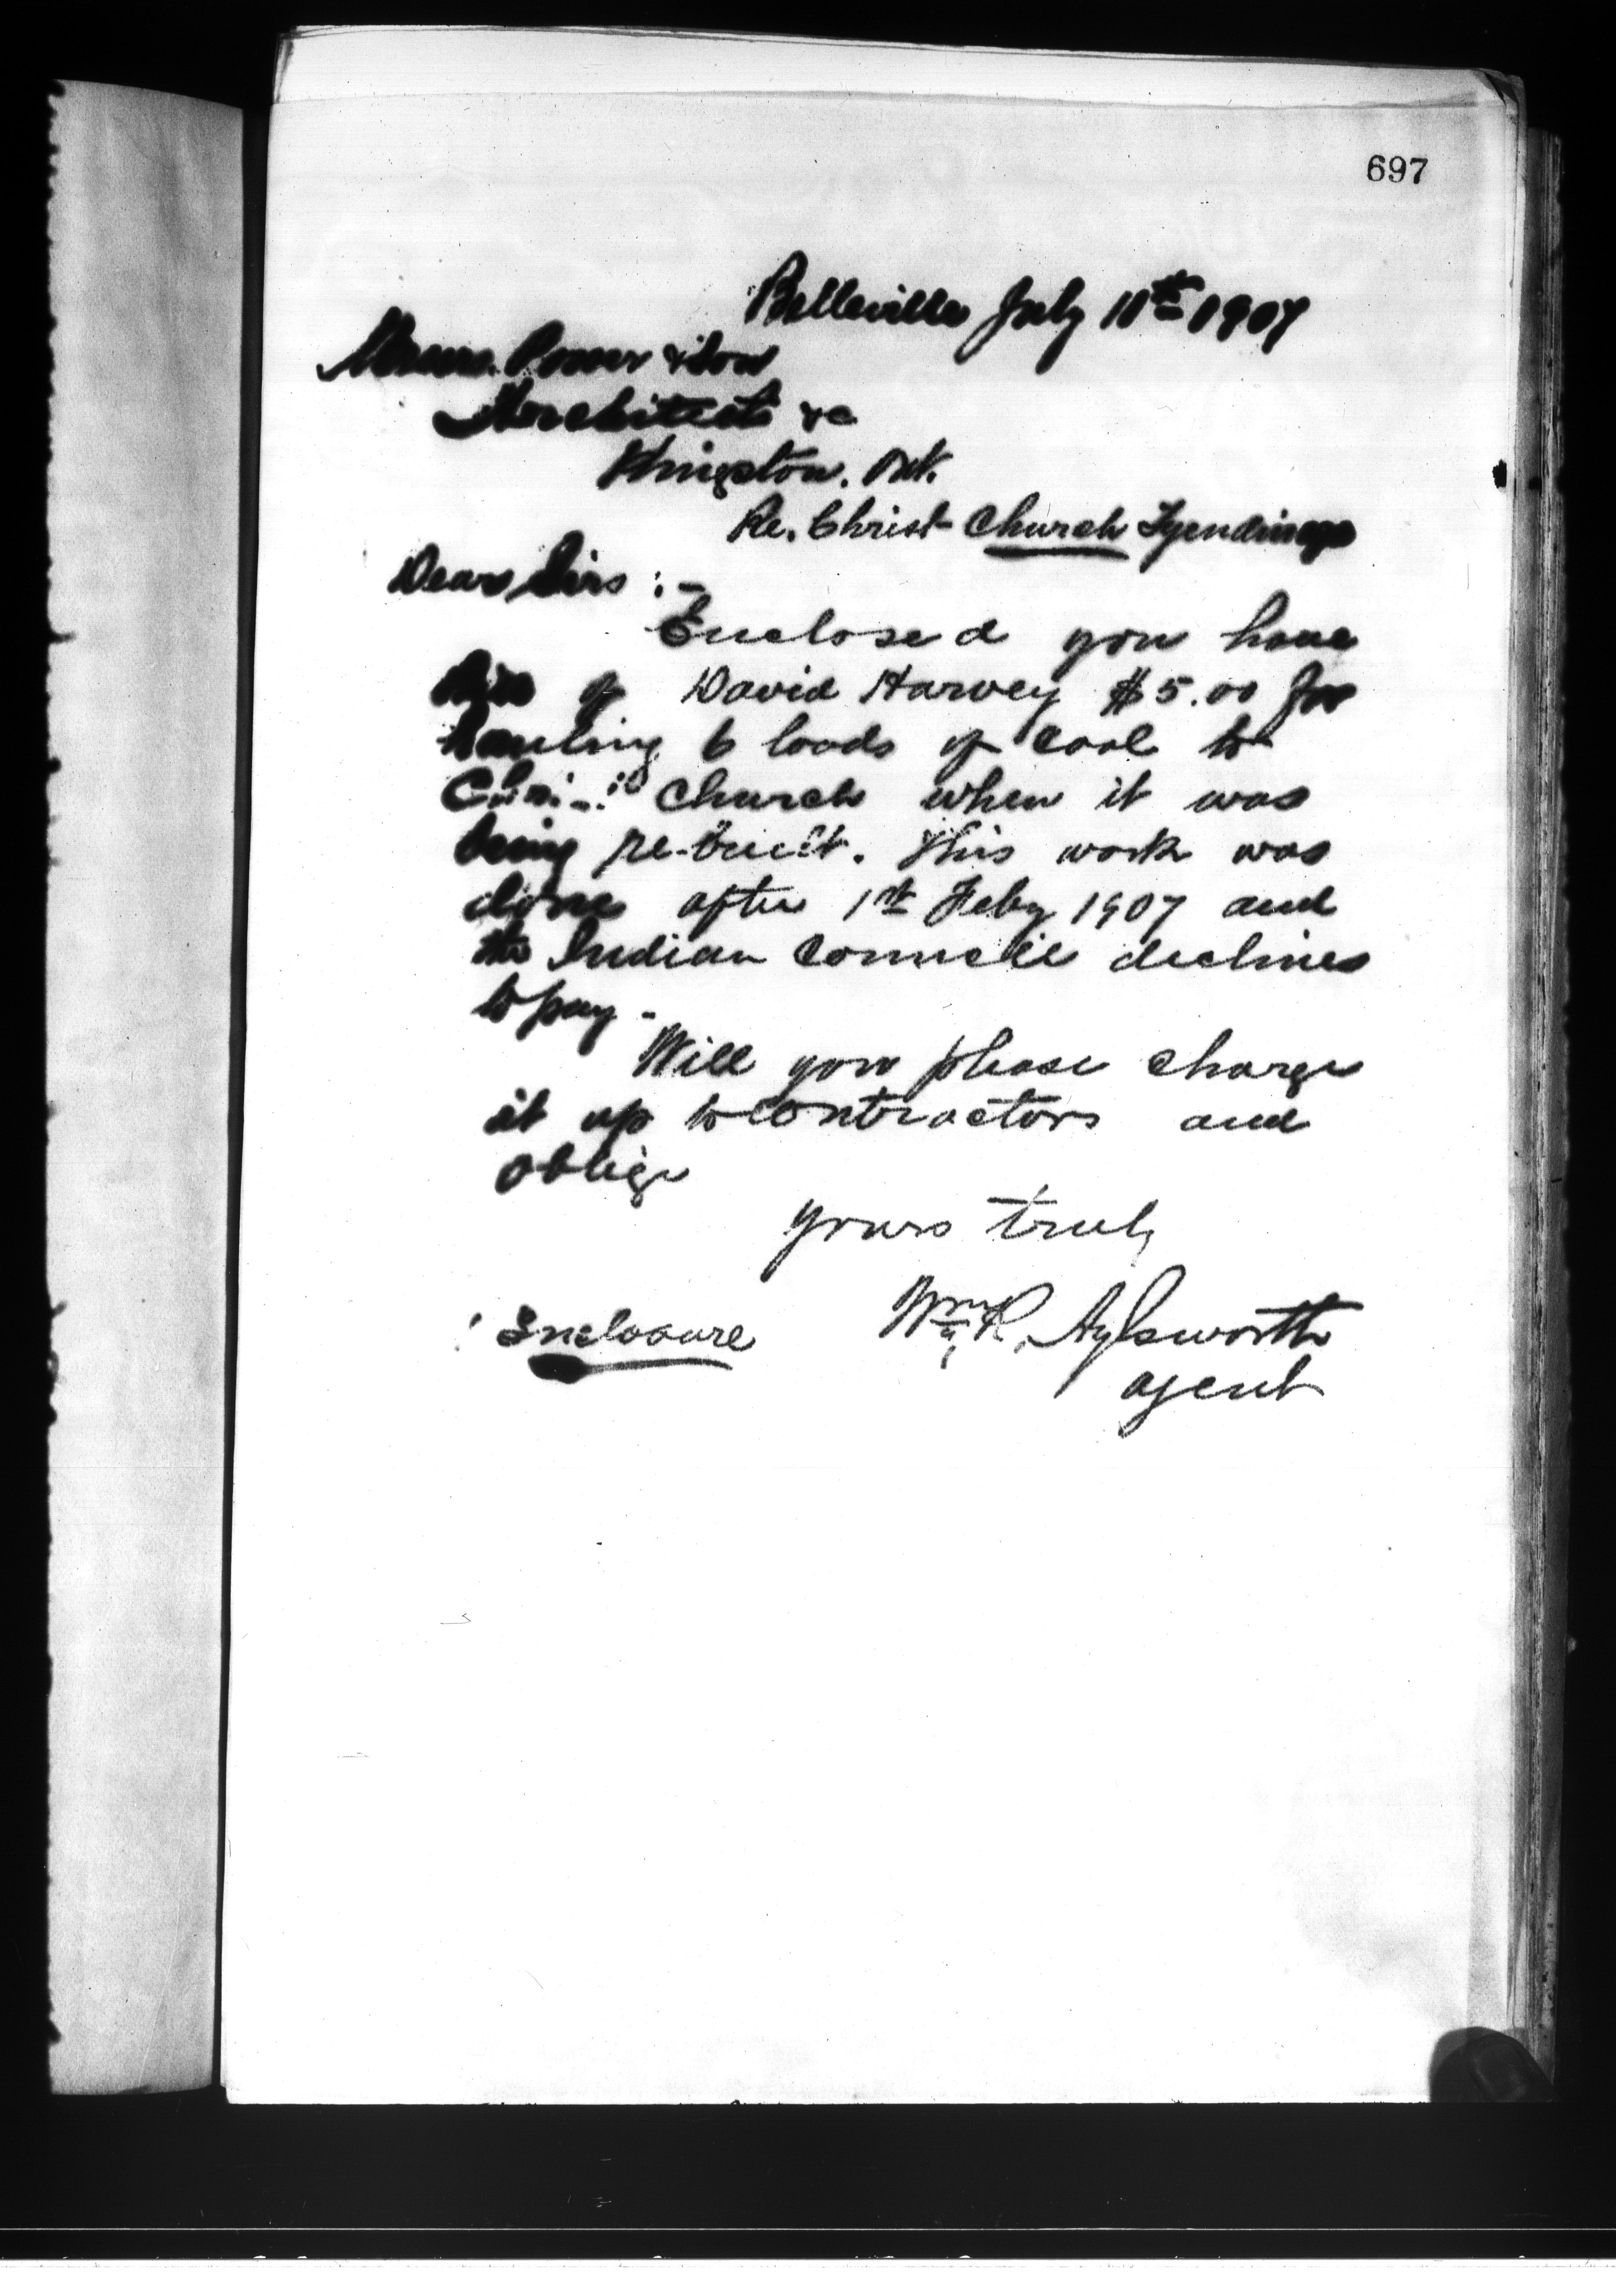 697
Belleville July 11th 1907
Messrs. Power & Son
Architects &c
Kingston. Ont.
Re. Christ Church Tyendinaga
Dear Sirs :-
Enclosed you have
bill of David Harvey $5.00 for
hauling 6 loads of coal to
Christ Church when it was
being re-built. This work was
done after 1st Feby 1907 and
the Indian Council declines
to pay -
Will you please charge
it up to contractors and
oblige
yours truly
Wm R. Aylsworth
agent
Enclosure